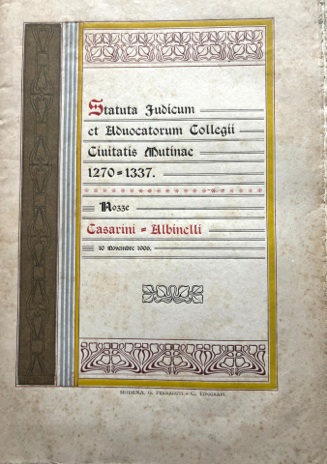 Statuta Judicum
et Advocatorum Collegii
Civitatis Mutinae
1270=1337.
Nozze
Casarini = Albinelli
10 Novembre 1906.
MODENA, G. FERRAGUTI e C. TIPOGRAFI.